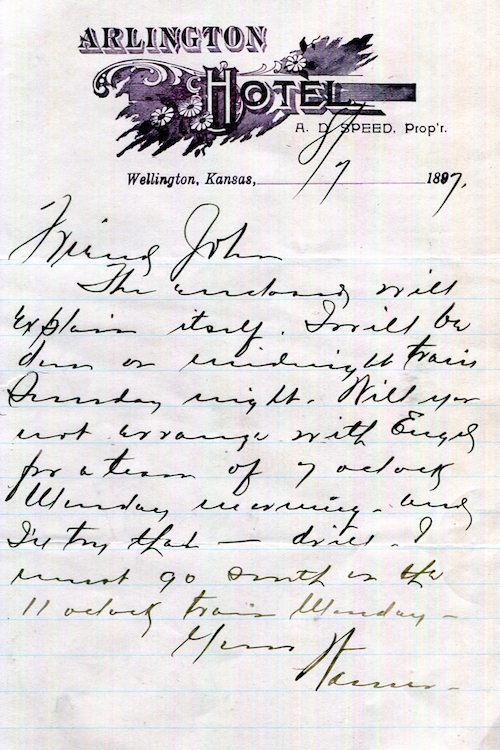 ARLINGTON
HOTEL
A. D. SPEED, Prop'r.
Wellington, Kansas, 8/7 1897.
Friend John
The enclosed will
explain itself. I will be
down on midnight train
Sunday night. Will you
not arrange with Engel
for a team of 7 oclock
Monday morning - and
I'll try that — drive. I
must go south on the
11 oclock train Monday -
Yours